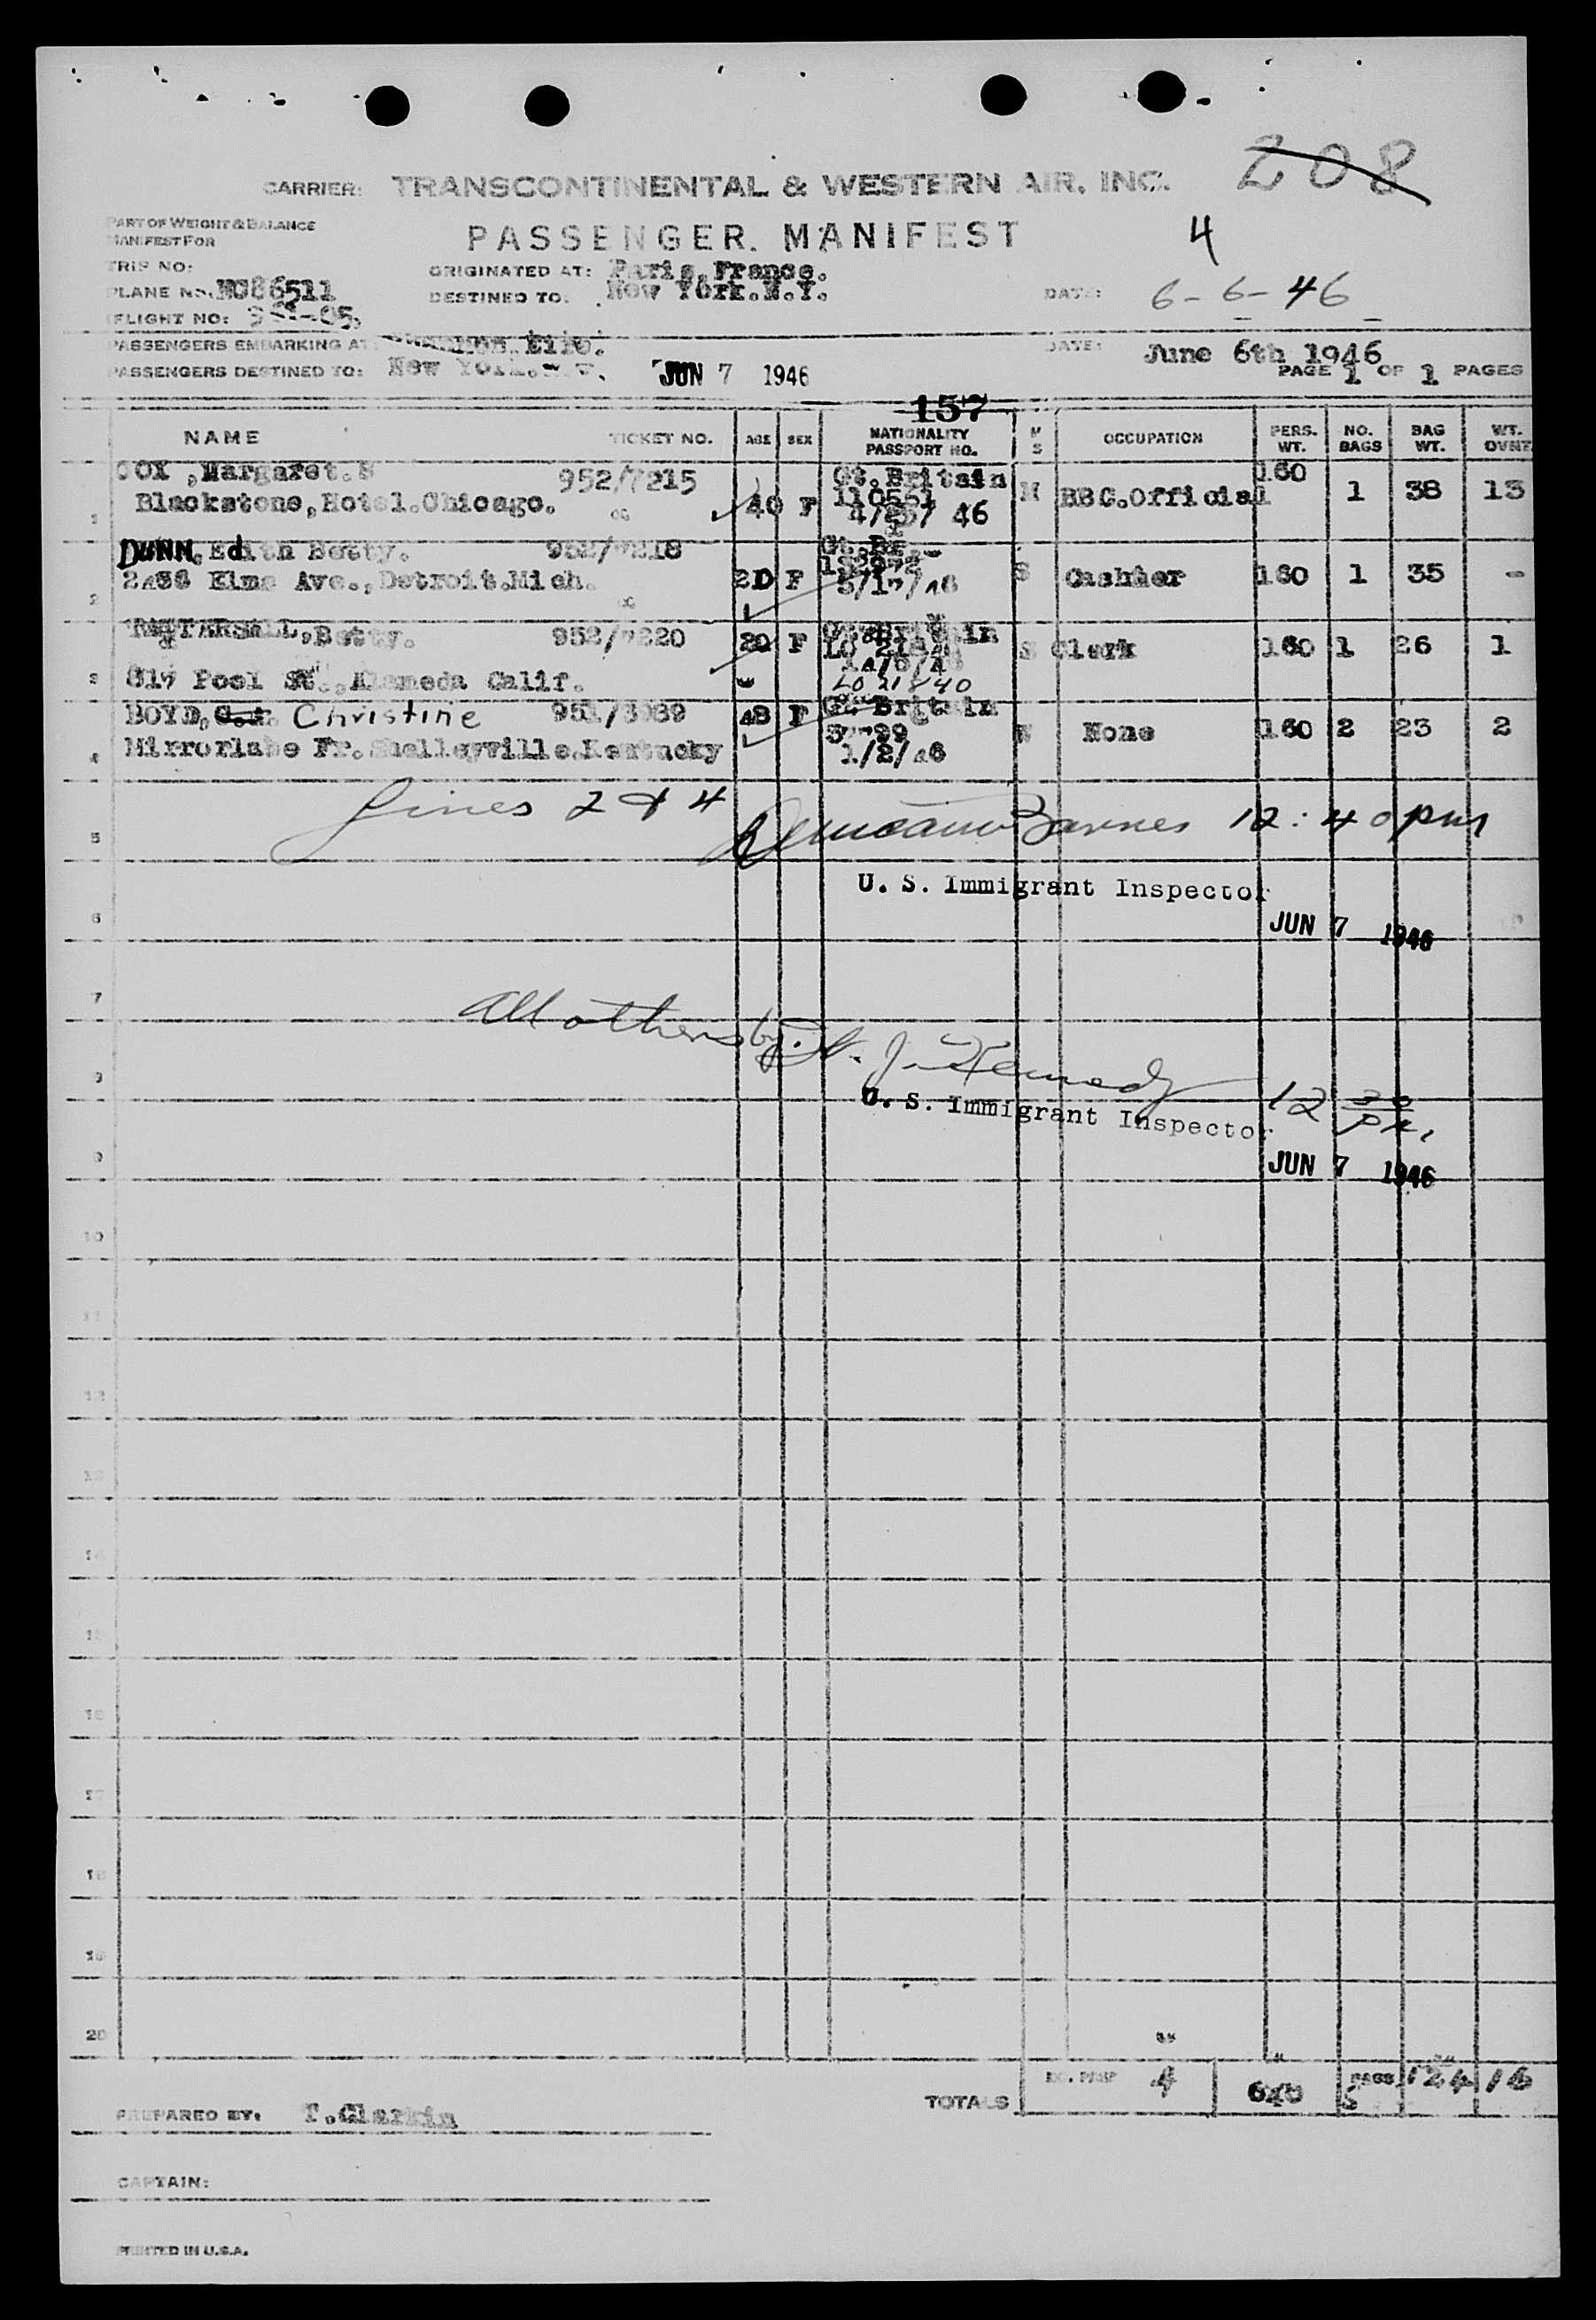 208
CARRIER: TRANSCONTINENTAL & WESTERN AIR, INC.
PART OF WEIGHT & BALANCE
MANIFEST FOR
PASSENGER MANIFEST
4
TRIP NO:
ORIGINATED AT: Paris,France.
PLANE NO. NC86511
DESTINED TO: New York.N.Y.
DATE: 6-6-46
FLIGHT NO:
PASSENGERS EMBARKING AT: Eire.
DATE: June 6th 1946
PASSENGERS DESTINED TO: New York.N.Y. JUN 7 1946
PAGE 1 OF 1 PAGES
157
NAME TICKET NO. AGE SEX NATIONALITY PASSPORT NO. M S OCCUPATION PERS. WT. NO. BAGS BAG WT. WT. OVER
1 COX ,Margaret.S 952/7215 40 F Gt.Britain 110551 M BBC.Official 160 1 38 13
Blackstone,Hotel.Chicago. 4/25/ 46
2 DUNN.Edith Betty. 952/7218 20 F Gt.Br. 132972 S Cashier 160 1 35 -
Elms Ave.,Detroit.Mich. 5/17/46
3 TATTARSALL,Betty. 952/7220 20 F Gt.Britain S Clerk 160 1 26 1
817 St.,Alameda Calif. LO 21840
4 BOYD, Christine 48 F Gt.Britain W None 160 2 23 2
Fr.Shelleyville.Kentucky 1/2/46
5 Lines 2 & 4 Barnes 12:40 pm
U. S. Immigrant Inspector
6
JUN 7 1946
7
All others by: J. Kennedy
8
U. S. Immigrant Inspector 12 30 pm.
9
JUN 7 1946
10
11
12
13
14
15
16
17
18
19
20
TOTALS 4 640 BAGS 5 124 16
PREPARED BY: T.Clarkin
CAPTAIN:
PRINTED IN U.S.A.